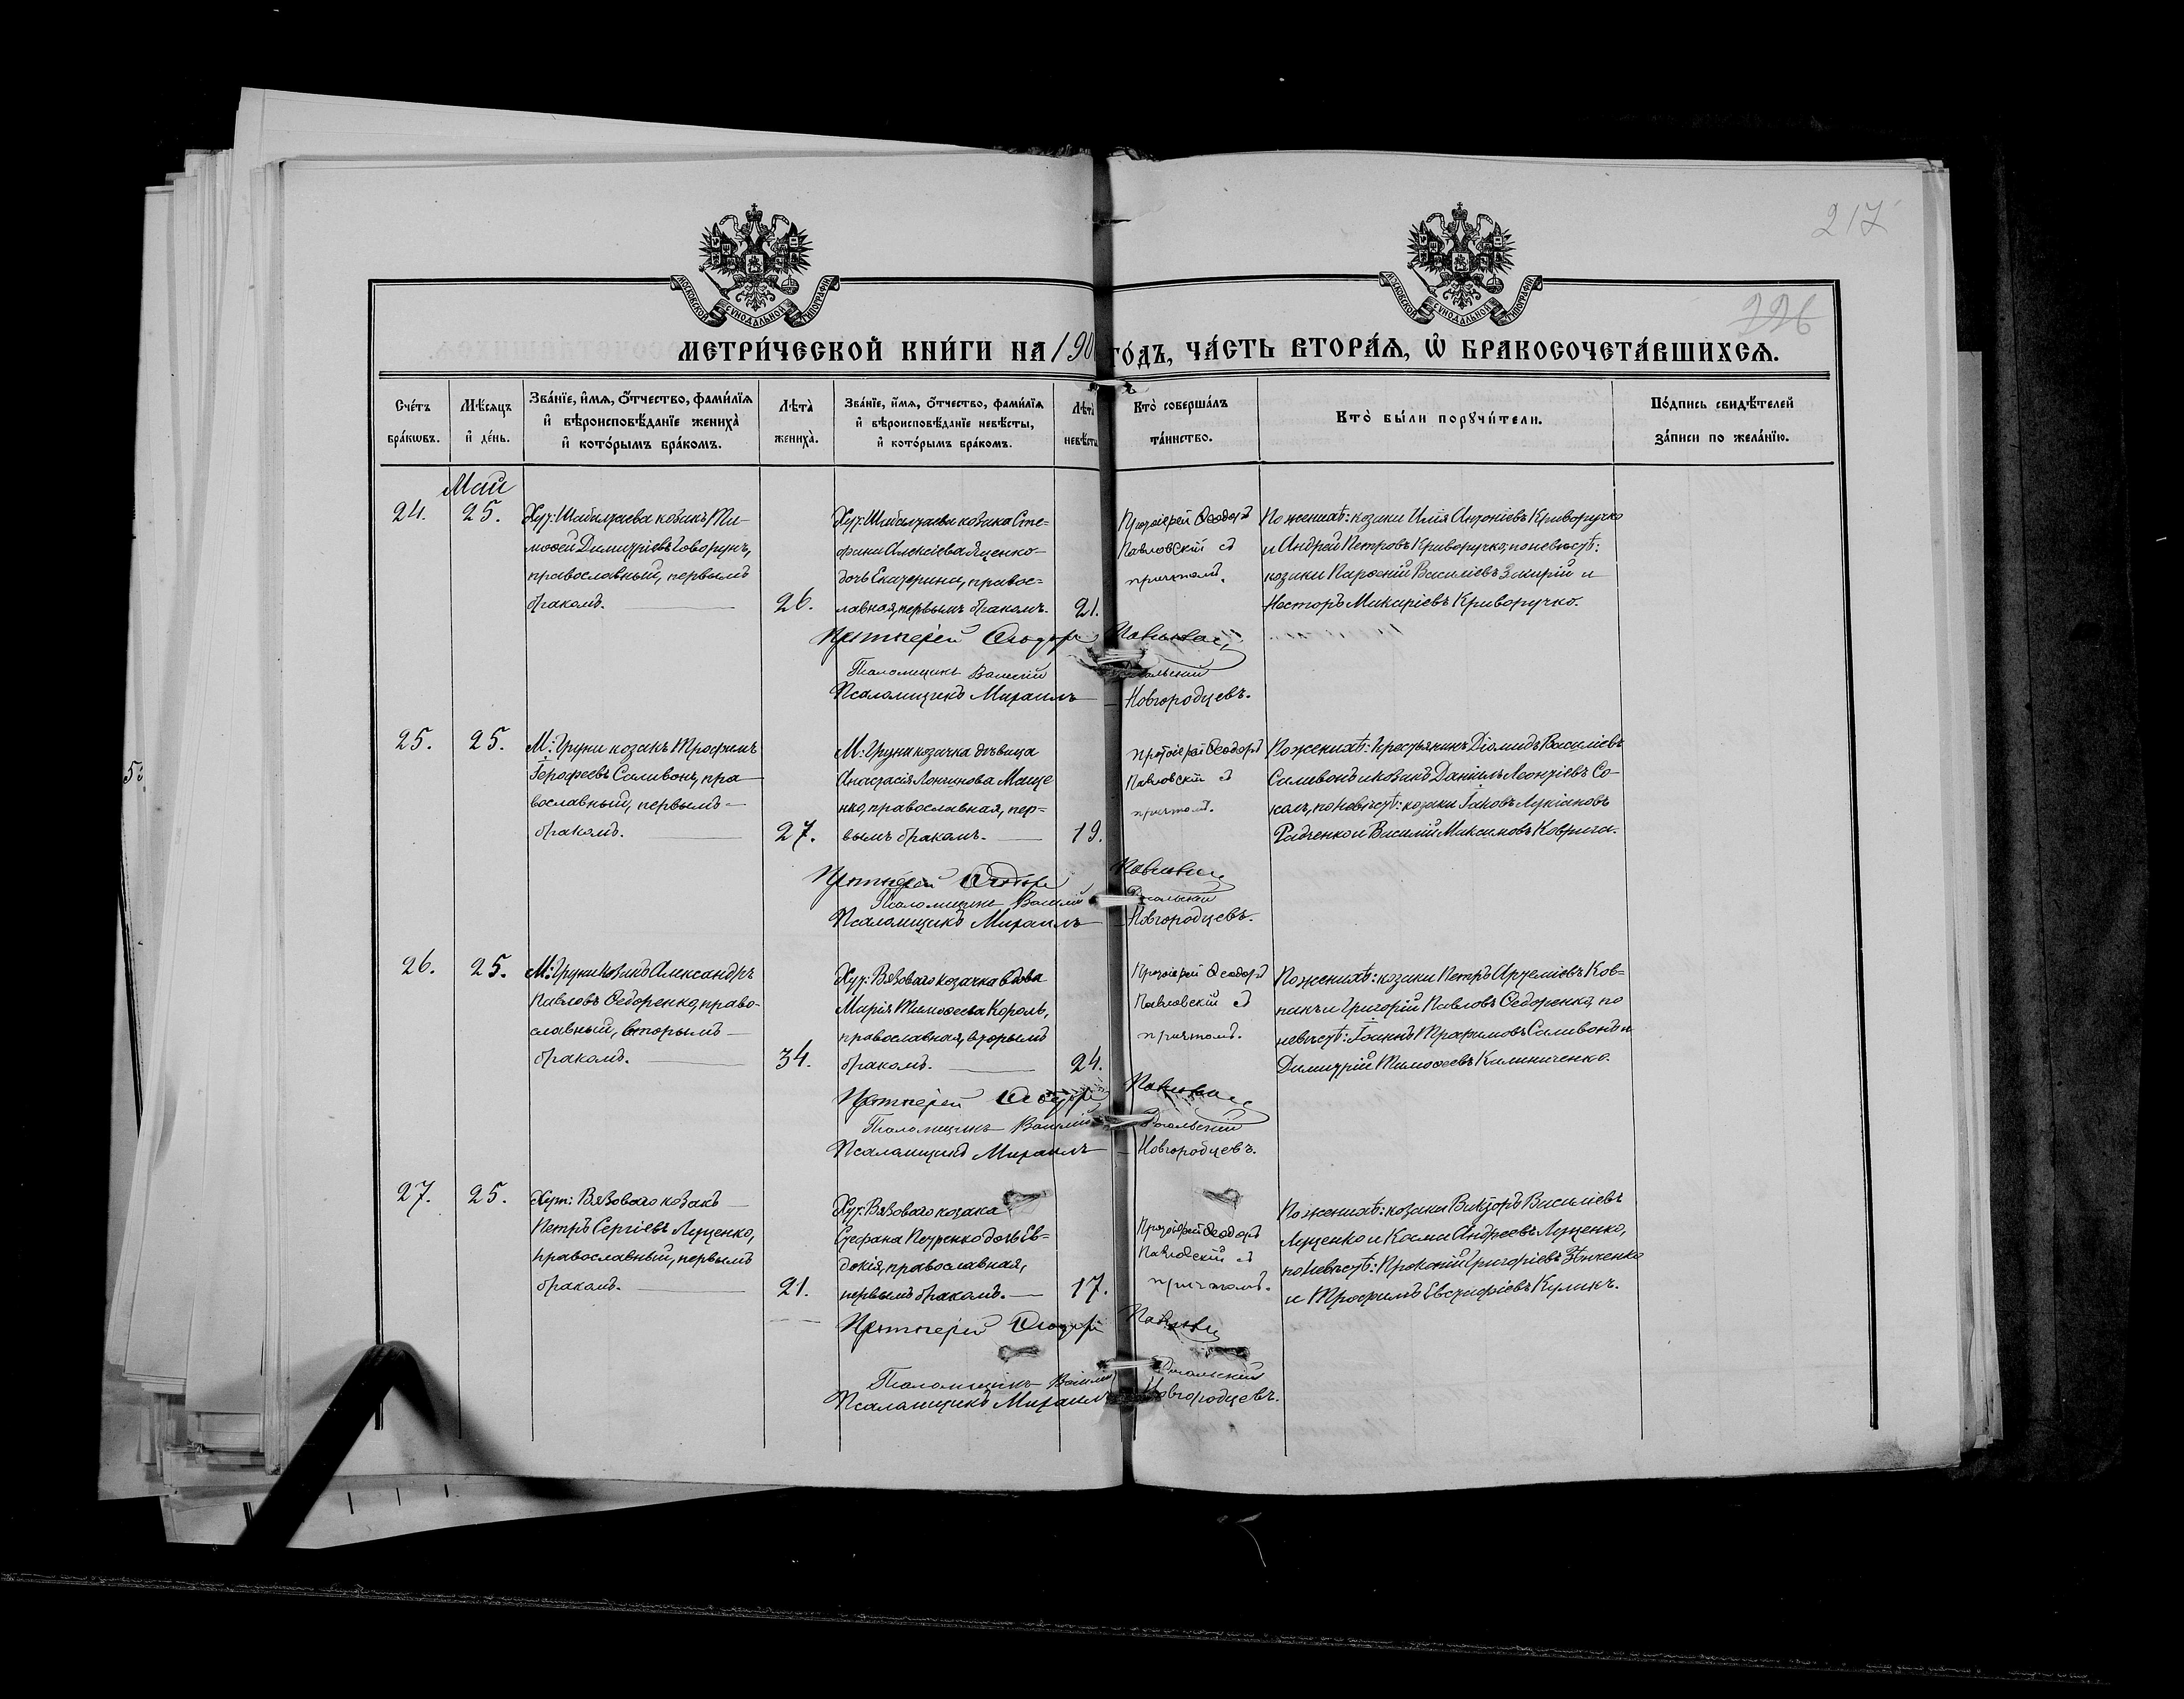 217
226
МОСКОВСКОЙ СѴНОДАЛЬНОЙ ТИПОГРАФІИ
МОСКОВСКОЙ СѴНОДАЛЬНОЙ ТИПОГРАФІИ
МЕТРИ́ЧЕСКОЙ КНИ́ГИ НА 190 ГО́ДЪ, ЧА́СТЬ ВТОРА́Я, Ѡ БРАКОСОЧЕТА́ВШИХСЯ.
Сче́тъ бра́кωвъ.
Мѣ́сяцъ и де́нь.
Зва́нїе, и́мя, ѻ҆́тчество, фами́лїя и вѣроисповѣ́данїе жениха̀ и кото́рымъ бра́комъ.
Лѣта̀ жениха̀.
Зва́нїе, и́мя, ѻ҆́тчество, фами́лїя и вѣроисповѣ́данїе невѣ́сты, и кото́рымъ бра́комъ.
Лѣта̀ невѣ́сты
Кто̀ соверша́лъ та́инство.
Кто̀ бы́ли порꙋчи́тели.
По́дпись свидѣ́телей за́писи по жела́нїю.
Май
24.
25.
Хут: Шабалтаева козакъ Ти-
моѳей Димитріевъ Говорунъ,
православный, первымъ
бракомъ.
26.
Хут: Шабалтаева козака Сте=
фана Алексіева Яценко-
дочь Екатерина, правос=
лавная, первымъ бракомъ.
21.
Протоіерей Ѳеодоръ
Павловскій съ
причтомъ.
По женихѣ: козаки Илія Антоніевъ Криворучко
и Андрей Петровъ Криворучко; по невѣстѣ:
козаки Парѳеній Василіевъ Змирій и
Несторъ Макаріевъ Криворучко.
Протоіерей Ѳеодоръ Павловскій
Псаломщикъ Василій
Псаломщикъ Михаилъ Новгородцевъ.
25.
25.
М: Груни козакъ Трофимъ
Іерофеевъ Саливонъ, пра-
вославный, первымъ
бракомъ.
27.
М: Груни козачка дѣвица
Анастасія Лонгинова Маце
нко, православная, пер=
вымъ бракомъ.
19.
Протоіерей Ѳеодоръ
Павловскій съ
причтомъ.
По женихѣ: крестьянинъ Діомидъ Василіевъ
Саливонъ и козакъ Даніилъ Леонтіевъ Со-
калъ, по невѣстѣ: козаки Іаковъ Лукіановъ
Радченко и Василій Максимовъ Коврига.
Протоіерей Ѳеодоръ Павловскій
Псаломщикъ Василій
Псаломщикъ Михаилъ Новгородцевъ.
26.
25.
М: Груни козакъ Александръ
Павловъ Ѳедоренко, право-
славный, вторымъ
бракомъ.
34.
Хут: Вязоваго козачка вдова
Марія Тимоѳеева Король,
православная, вторымъ
бракомъ.
24.
Протоіерей Ѳеодоръ
Павловскій съ
причтомъ.
По женихѣ: козаки Петръ Артеміевъ Ков=
панъ и Григорій Павловъ Ѳедоренко, по
невѣстѣ: Іоаннъ Трофимовъ Саливонъ и
Димитрій Тимоѳеевъ Калиниченко.
Протоіерей Ѳеодоръ Павловскій
Псаломщикъ Василій
Псаломщикъ Михаилъ Новгородцевъ.
27.
25.
Хут: Вязоваго козакъ
Петръ Сергіевъ Луценко,
православный, первымъ
бракомъ.
21.
Хут: Вязоваго козака
Стефана Петренко дочь Ев-
докія, православная,
первымъ бракомъ.
17.
Протоіерей Ѳеодоръ
Павловскій съ
причтомъ.
По женихѣ: козаки Викторъ Василіевъ
Луценко и Косма Андреевъ Луценко,
по невѣстѣ: Прокопій Григоріевъ Зѣнченко
и Трофимъ Евстафіевъ Куликъ.
Протоіерей Ѳеодоръ Павловскій
Псаломщикъ Василій
Псаломщикъ Михаилъ Новгородцевъ.